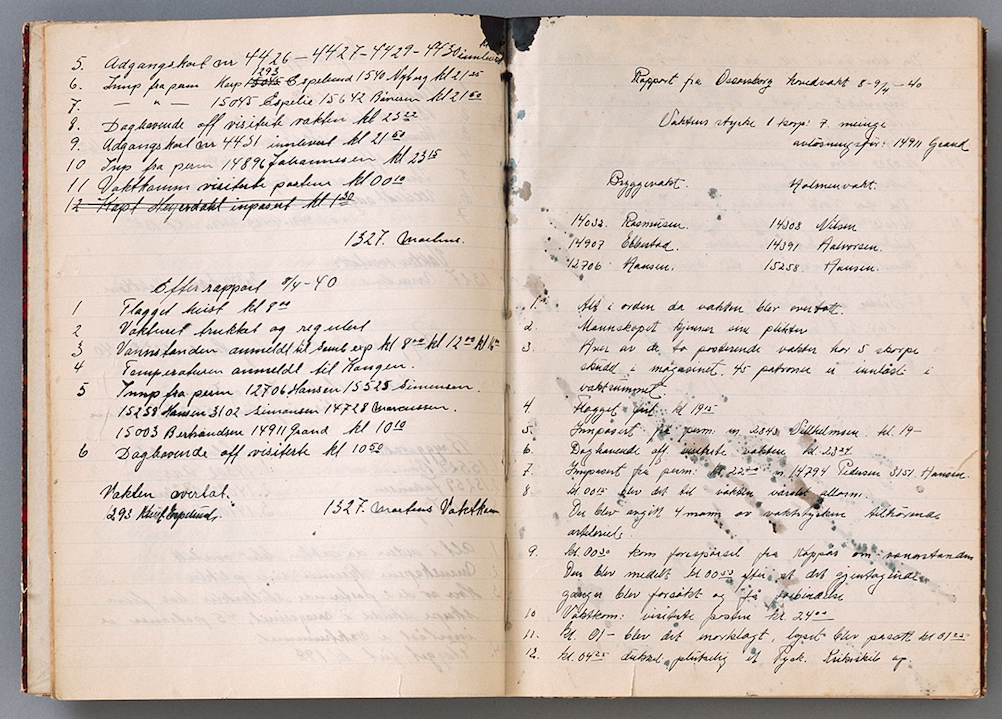 5. Adgangskort nr 4426 – 4427 – 4429 – 4430 innlevert
6. Innp fra perm Korp 293 Espelund 1540 Nyborg kl 21
7. – " – 15045 Espelie 15642 Bönesen kl 21 50
8. Daghavende off visiterte vakten kl 23 22
9. Adgangskort nr 4431 innlevert kl 21 50
10 Inp fra perm 14896 Johannesen kl 23 15
11 Vaktkomm visiterte postene kl 00 10
12 Kapt Heyerdahl inpasert kl 1 30
1327. Martens.
Efterrapport 9/4 – 40
1 Flagget heist kl 8 00
2 Vakturet trukket og regulert
3 Vannstanden anmeldt til Samb exp kl 8 00 kl 12 00 kl
4 Temperaturen anmeldt til Hangen.
5 Innp fra perm 12706 Hansen 15525 Simensen.
15258 Hansen 3102 Simonsen 14728 Marcussen.
15003 Berhandsen 14911 Grand kl 10 10
6 Daghavende off visiterte kl 10 50
Vakten overtat.
293 Espelund. 1327. Martens Vaktkom
Rapport fra hovedvakt 8–9/4 – 40
Vaktens styrke 1 korp: 7. meinge
avlösningsför: 14911 Grand
Bryggevakt. Holmenvakt.
14032 Rasmusen. 14303 Nilsen
14907 Ekkestad. 14391 Halvorsen.
12706 Hansen. 15258 Hansen.
1. Alt i orden da vakten blev overtatt.
2. Mannskapet kjenner sine plikter
3. Hver av de to posterende vakter har 5 skarpe
skudd i magasinet. 45 patroner er innlåst i
vaktrummet
4. Flagget firt kl 19 15
5. Innpasert fra perm: nr 2343 Vilhelmsen. kl. 19 –
6. Daghavende off. visiterte vakten kl. 23 24.
7. Innpasert fra perm: kl. 22 00 nr. 14794 Pedersen 3157 Hansen.
8. kl. 00 15 blev det til vakten varslet allarm.
Der blev avgitt 4 mann av vaktstyrken tilhörende
artilleriet.
9. kl. 00 30 kom forespörsel fra Köpås om vannstanden
Den blev meddelt kl 00 53 efter at det gjentagende
ganger blev forsökt og få forbindelse
10 Vaktkom: visiterte posten kl. 24 00
11. kl. 01 – blev det mörklagt, lyset blev påsatt kl 01 25
12. kl. 04 25 dukket plutselig et Tysk. Krikskib op